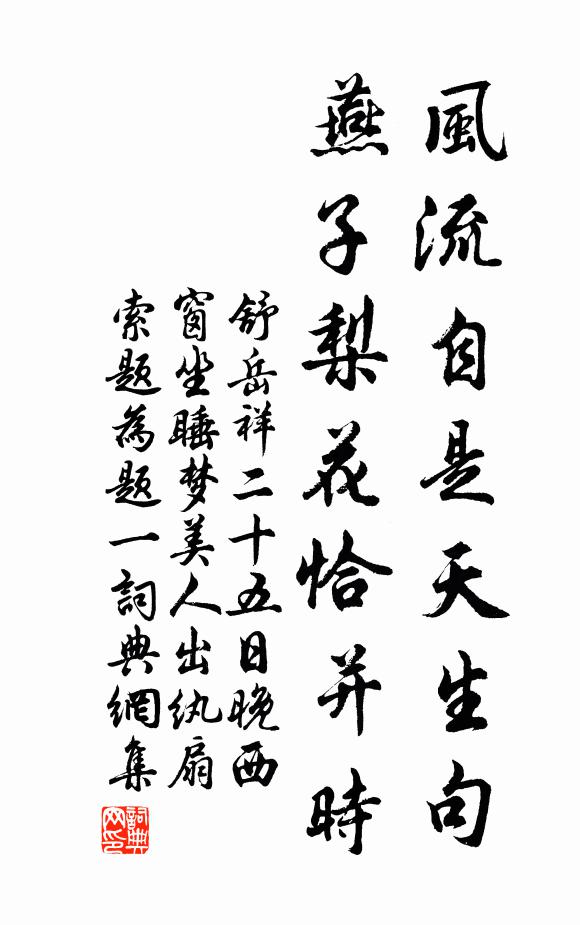 風流自是天生句
燕子梨花恰并時
舒岳祥二十五日晚西
窗坐睡梦美人出纨扇
索题為题一詞典網集
詞典
网印